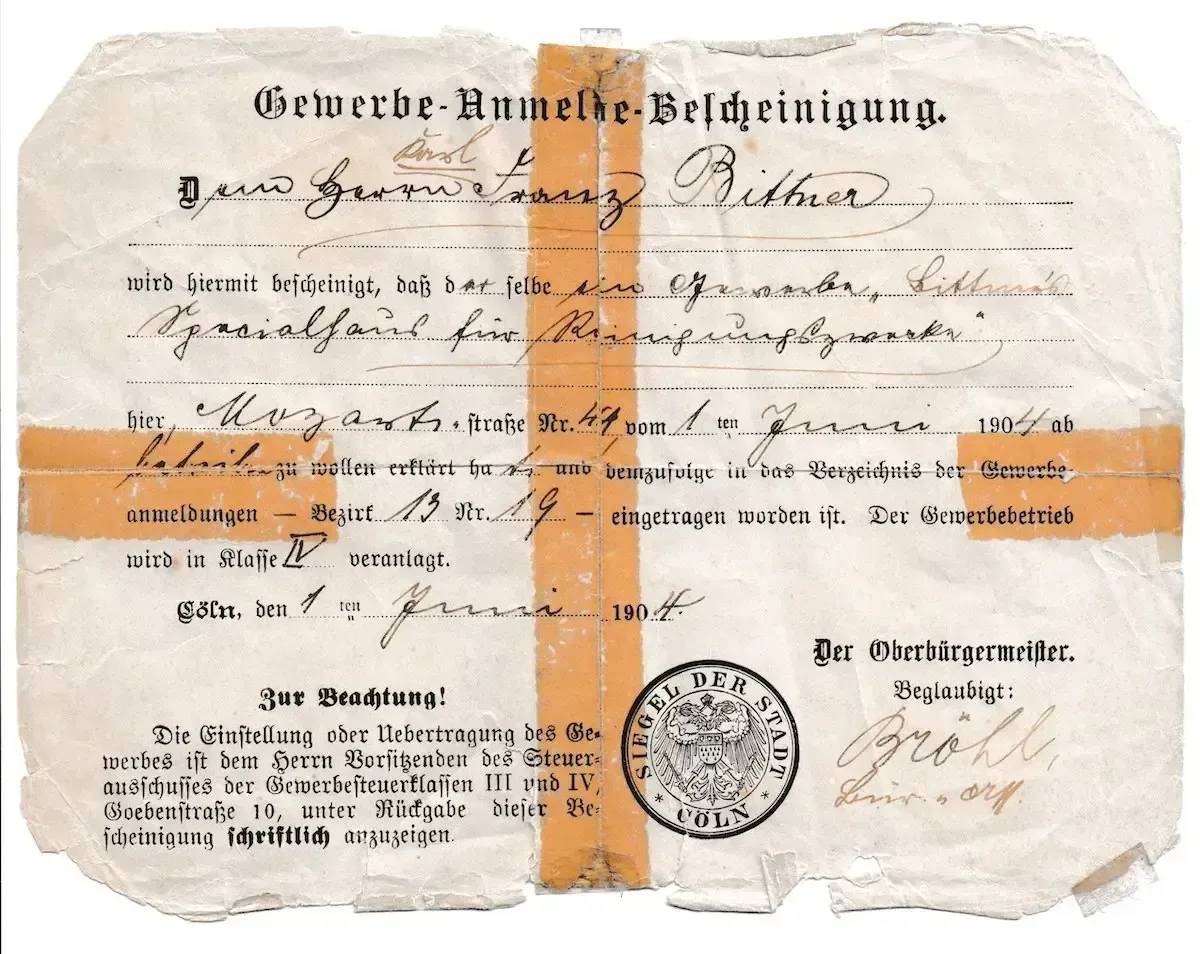 Gewerbe-Anmelde-Bescheinigung.
Karl
Dem Herrn Franz Bittner
wird hiermit bescheinigt, daß der selbe ein Gewerbe „Bittner's
Specialhaus für Reinigungszwecke"
hier, Mozart-straße Nr. 41 vom 1 ten Juni 1904 ab
zu wollen erklärt hat, und demzufolge in das Verzeichnis der Gewerbe-
anmeldungen — Bezirk 13 Nr. 19 — eingetragen worden ist. Der Gewerbebetrieb
wird in Klasse IV veranlagt.
Cöln, den 1 ten Juni 1904.
Der Oberbürgermeister.
Beglaubigt:
Bröhl,
Zur Beachtung!
Die Einstellung oder Uebertragung des Ge-
werbes ist dem Herrn Vorsitzenden des Steuer-
ausschusses der Gewerbesteuerklassen III und IV,
Goebenstraße 10, unter Rückgabe dieser Be-
scheinigung schriftlich anzuzeigen.
SIEGEL DER STADT
* CÖLN *